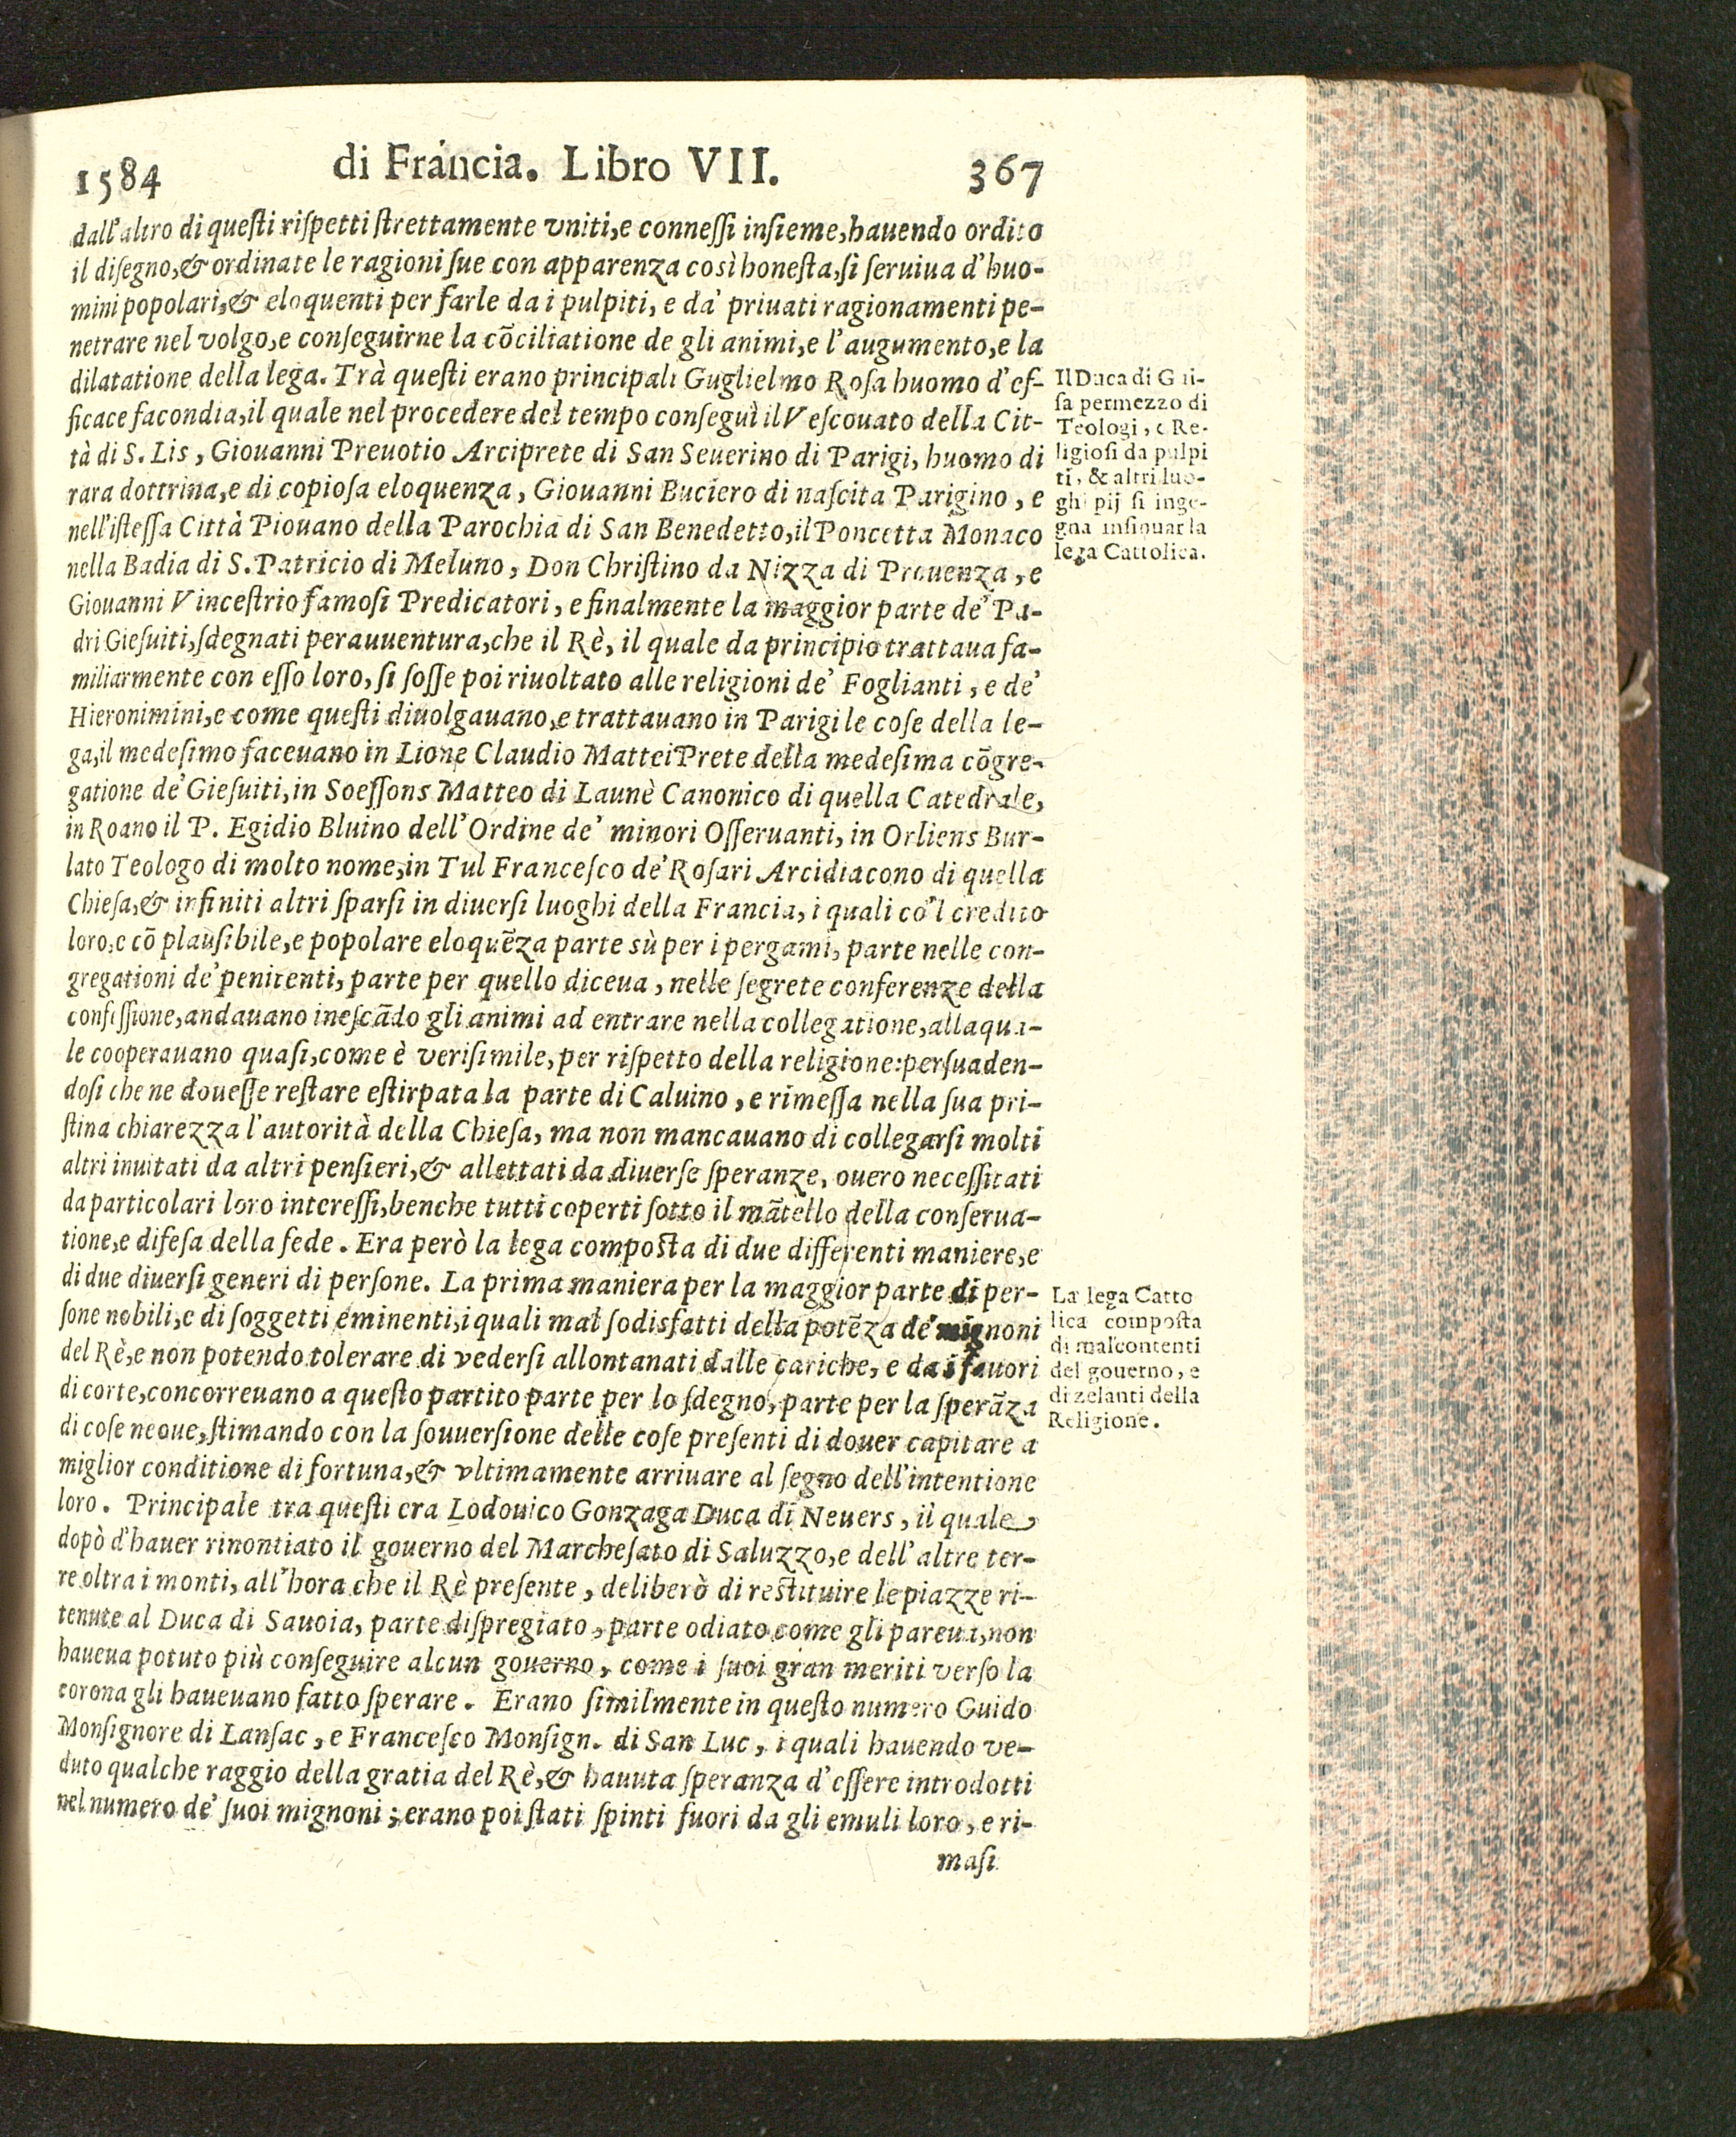 1584 di Francia. Libro VII. 367
dall'altro di queſti riſpetti ſtrettamente vniti, e conneſſi inſieme, hauendo ordito
il diſegno, & ordinate le ragioni ſue con apparenza così honeſta, ſi ſeruiua d'huo-
mini popolari, & eloquenti per farle da i pulpiti, e da' priuati ragionamenti pe-
netrare nel volgo, e conſeguirne la cõciliatione de gli animi, e l'augumento, e la
dilatatione della lega. Trà queſti erano principali Guglielmo Roſa huomo d'ef-
ficace facondia, il quale nel procedere del tempo conſeguì il Veſcouato della Cit-
tà di S. Lis, Giouanni Preuotio Arciprete di San Seuerino di Parigi, huomo di
rara dottrina, e di copioſa eloquenza, Giouanni Buciero di naſcita Parigino, e
nell'iſteſſa Città Piouano della Parochia di San Benedetto, il Poncetta Monaco
nella Badia di S. Patricio di Meluno, Don Chriſtino da Nizza di Prouenza, e
Giouanni Vinceſtrio famoſi Predicatori, e finalmente la maggior parte de' Pa-
dri Gieſuiti, ſdegnati perauuentura, che il Rè, il quale da principio trattaua fa-
miliarmente con eſſo loro, ſi foſſe poi riuoltato alle religioni de' Foglianti, e de'
Hieronimini, e come queſti diuolgauano, e trattauano in Parigi le coſe della le-
ga, il medeſimo faceuano in Lione Claudio Mattei Prete della medeſima cõgre-
gatione de' Gieſuiti, in Soeſſons Matteo di Launè Canonico di quella Catedrale,
in Roano il P. Egidio Bluino dell'Ordine de' minori Oſſeruanti, in Orliens Bur-
lato Teologo di molto nome, in Tul Franceſco de' Roſari Arcidiacono di quella
Chieſa, & infiniti altri ſparſi in diuerſi luoghi della Francia, i quali co'l credito
loro, e cõ plauſibile, e popolare eloquẽza parte sù per i pergami, parte nelle con-
gregationi de' penitenti, parte per quello diceua, nelle ſegrete conferenze della
confeſſione, andauano ineſcãdo gli animi ad entrare nella collegatione, alla qua-
le cooperauano quaſi, come è veriſimile, per riſpetto della religione: perſuaden-
doſi che ne doueſſe reſtare eſtirpata la parte di Caluino, e rimeſſa nella ſua pri-
ſtina chiarezza l'autorità della Chieſa, ma non mancauano di collegarſi molti
altri inuitati da altri penſieri, & allettati da diuerſe ſperanze, ouero neceſſitati
da particolari loro intereſſi, benche tutti coperti ſotto il mãtello della conſerua-
tione, e difeſa della fede. Era però la lega compoſta di due differenti maniere, e
di due diuerſi generi di perſone. La prima maniera per la maggior parte di per-
ſone nobili, e di ſoggetti eminenti, i quali mal ſodisfatti della potẽza de' mignoni
del Rè, e non potendo tolerare di vederſi allontanati dalle cariche, e da i fauori
di corte, concorreuano a queſto partito parte per lo ſdegno, parte per la ſperãza
di coſe neoue, ſtimando con la ſouuerſione delle coſe preſenti di douer capitare a
miglior conditione di fortuna, & vltimamente arriuare al ſegno dell'intentione
loro. Principale tra queſti era Lodouico Gonzaga Duca di Neuers, il quale
dopò d'hauer rinontiato il gouerno del Marcheſato di Saluzzo, e dell'altre ter-
re oltra i monti, all'hora che il Rè preſente, deliberò di reſtituire le piazze ri-
tenute al Duca di Sauoia, parte diſpregiato, parte odiato come gli pareua, non
haueua potuto più conſeguire alcun gouerno, come i ſuoi gran meriti verſo la
corona gli haueuano fatto ſperare. Erano ſimilmente in queſto numero Guido
Monſignore di Lanſac, e Franceſco Monſign. di San Luc, i quali hauendo ve-
duto qualche raggio della gratia del Rè, & hauuta ſperanza d'eſſere introdotti
nel numero de' ſuoi mignoni; erano poi ſtati ſpinti fuori da gli emuli loro, e ri-
maſi
Il Duca di Gui-
ſa per mezzo di
Teologi, e Re-
ligioſi da pulpi
ti, & altri luo-
ghi pij ſi inge-
gna inſinuar la
lega Cattolica.
La lega Catto
lica compoſta
di malcontenti
del gouerno, e
di zelanti della
Religione.